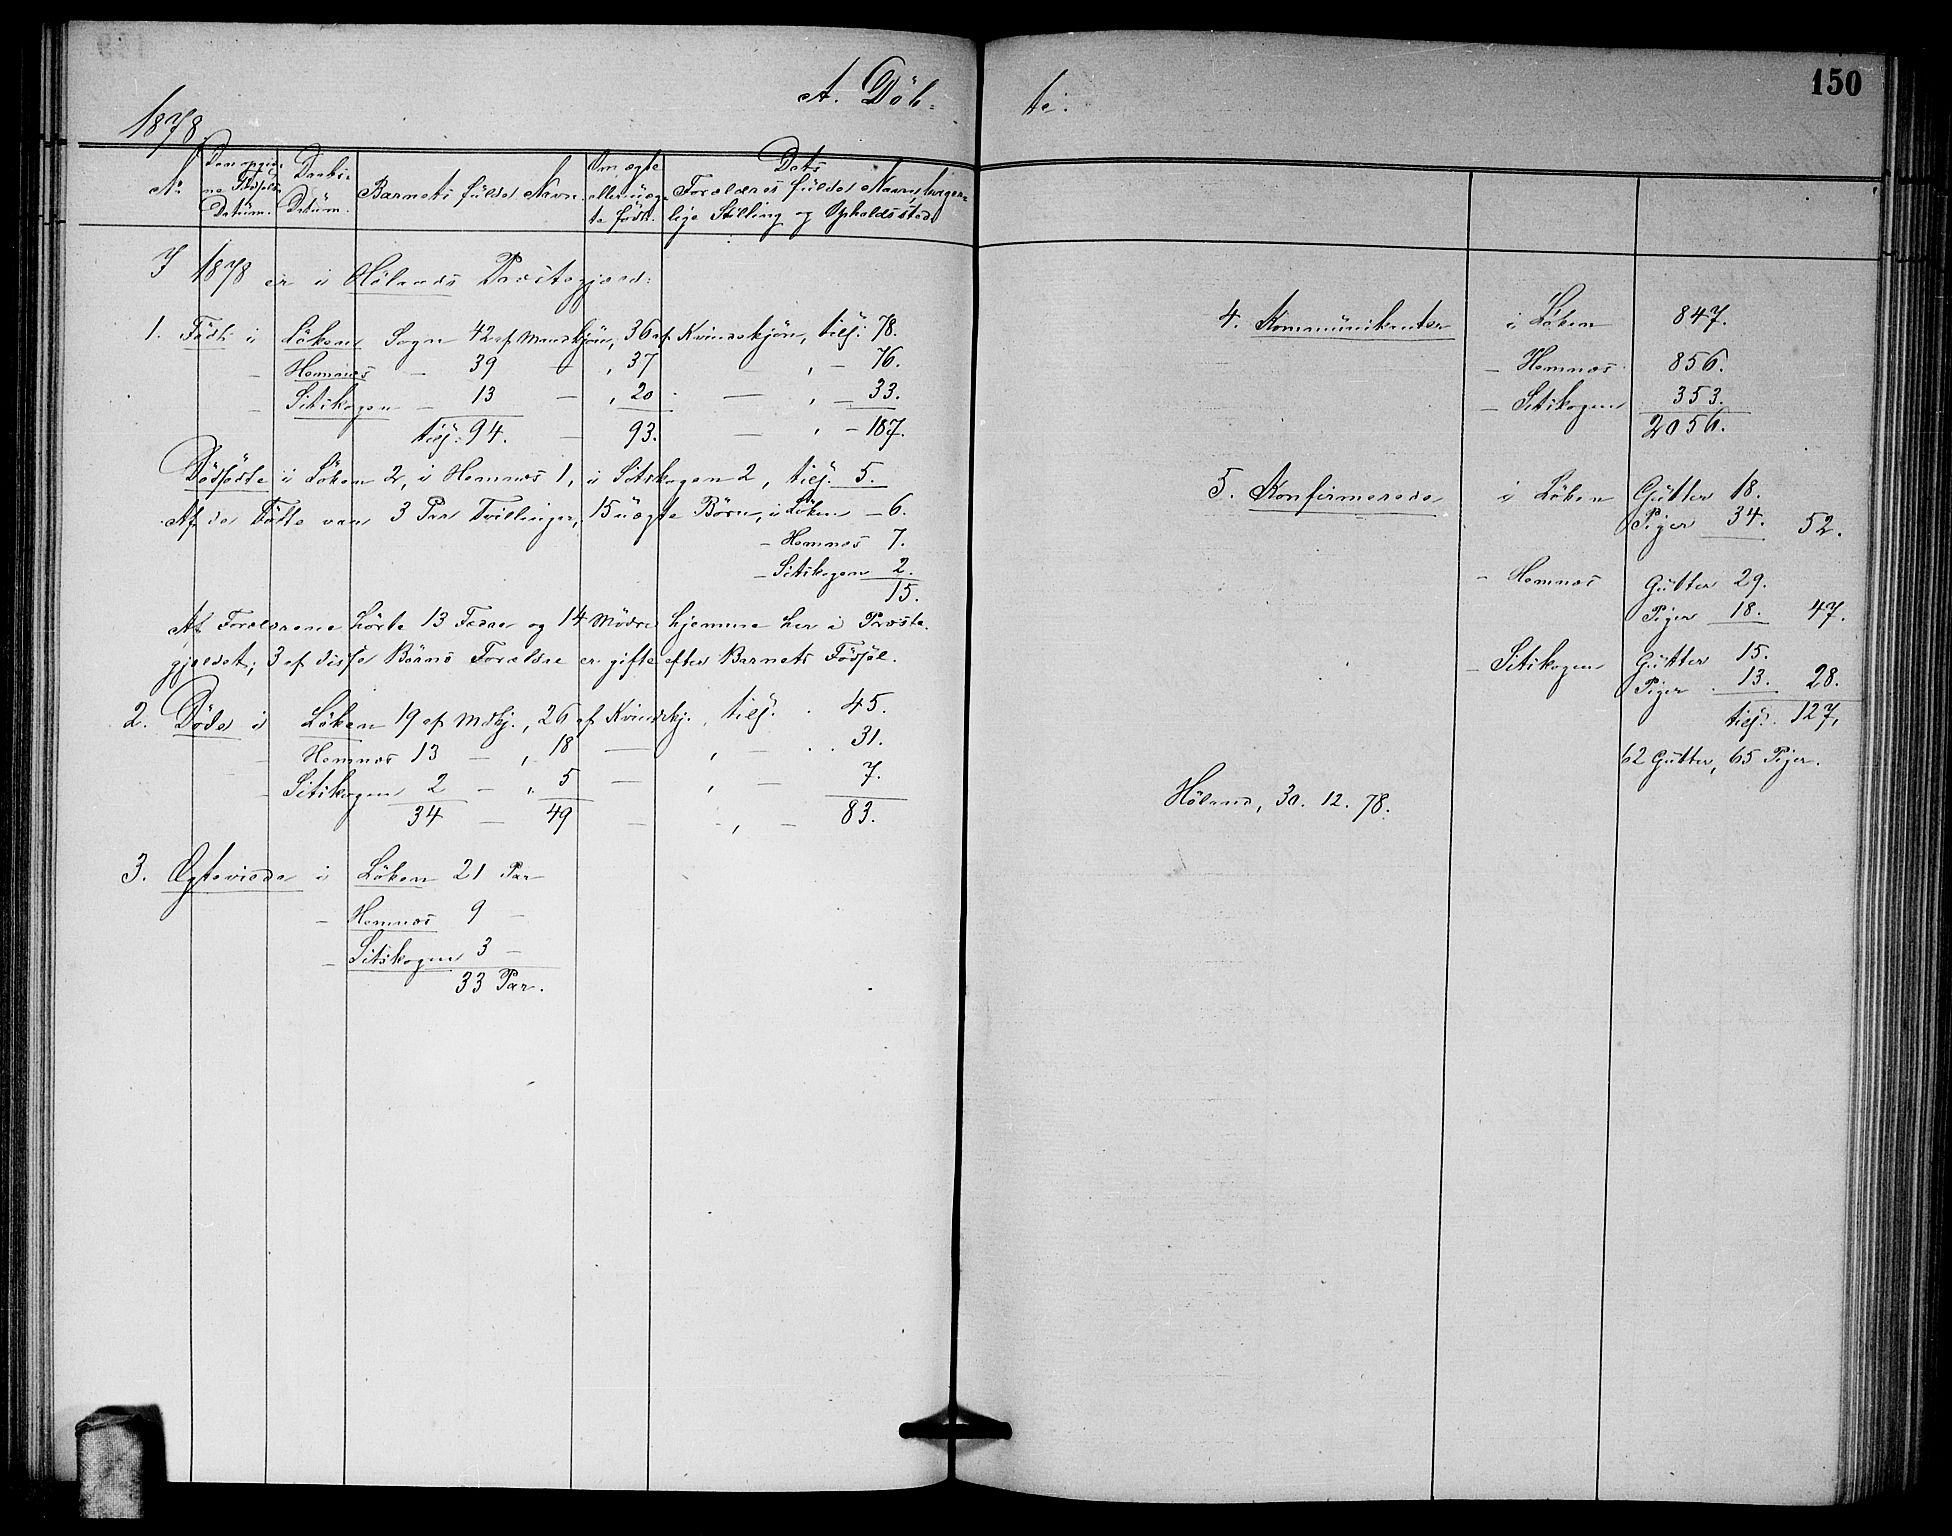 150
A. Döb=
te.
1878.
No
Den opgiv=
ne Fødsels
Datüm.
Daabs=
Datüm.
Barnets fülde Navn.
Om ægte
eller üæg=
te født.
Dets
Forældres fülde Navn, borger=
lige Stilling og Opholdssted.
I 1878 er i Hölands Præstegjeld:
1. Födt i Löken Sogn 42 af Mandkjön, 36 af Kvindekjön, tils: 78.
- Hemnæs - 39 - , 37 , - 76.
- Sitskogen - 13 - , 20 - , - 33.
tils: 94. - 93. - , - 187.
Dödfödte i Löken 2, i Hemnæs 1, i Sitskogen 2, tils. 5.
Af de Födte var 3 Par Tvillinger, 15 üægte Börn, i Löken - 6.
- Hemnæs 7.
- Sitskogen 2.
15.
Af Forældrene hörte 13 Fædre og 14 Mödre hjemme her i Præste=
gjeldet; 3 af disse Börns Forældre er gifte efter Barnets Födsel.
2. Döde i Löken 19 af Mdkj., 26 af Kvindekj., tils. 45.
- Hemnæs 13 - , 18 - , - 31.
- Sitskogen 2 - , 5 - , - 7.
34 - 49 - - , - 83.
3. Ægteviede i Löken 21 Par
- Hemnæs 9 -
- Sitskogen 3 -
33 Par.
4. Kommünikanter i Löken 847.
- Hemnæs 856.
- Sitskogen 353.
2056.
5. Konfirmerede i Löken Gütter 18.
Piger 34. 52.
- Hemnæs Gütter 29.
Piger 18. 47.
- Sitskogen Gütter 15.
Piger 13. 28.
tils. 127,
62 Gütter, 65 Piger.
Höland, 30. 12. 78.